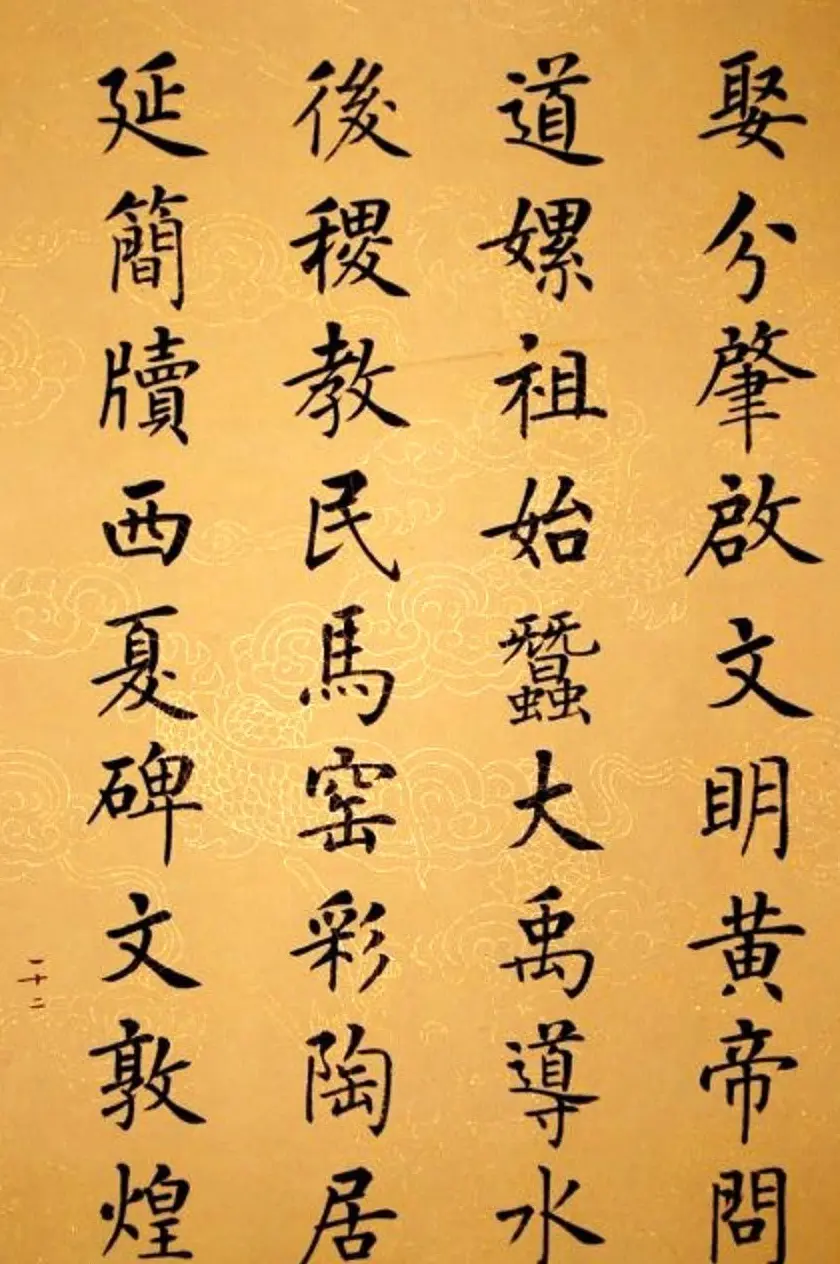 娶兮肇啟文明黃帝問
道嫘祖始蠶大禹導水
後稷教民馬窑彩陶居
延簡牘西夏碑文敦煌
一十二